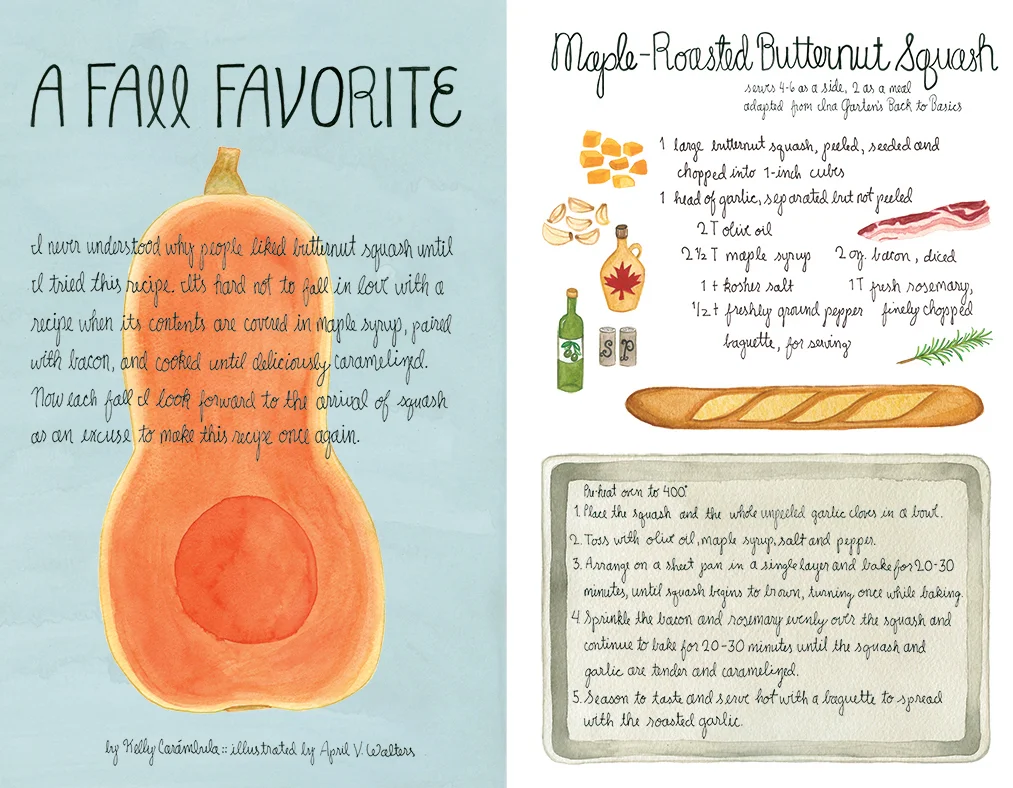 A FALL FAVORITE
I never understood why people liked butternut squash until
I tried this recipe. It's hard not to fall in love with a
recipe when its contents are covered in maple syrup, paired
with bacon, and cooked until deliciously caramelized.
Now each fall I look forward to the arrival of squash
as an excuse to make this recipe once again.
by Kelly Carámbula :: illustrated by April V. Walters
Maple-Roasted Butternut Squash
serves 4-6 as a side, 2 as a meal
adapted from Ina Garten's Back to Basics
1 large butternut squash, peeled, seeded and
chopped into 1-inch cubes
1 head of garlic, separated but not peeled
2 T olive oil
2 ½ T maple syrup
1 t kosher salt
½ t freshly ground pepper
2 oz. bacon, diced
1 T fresh rosemary,
finely chopped
baguette, for serving
S P
Pre-heat oven to 400°
1. Place the squash and the whole unpeeled garlic cloves in a bowl.
2. Toss with olive oil, maple syrup, salt and pepper.
3. Arrange on a sheet pan in a single layer and bake for 20-30
minutes, until squash begins to brown, turning once while baking.
4 Sprinkle the bacon and rosemary evenly over the squash and
continue to bake for 20-30 minutes until the squash and
garlic are tender and caramelized.
5. Season to taste and serve hot with a baguette to spread
with the roasted garlic.